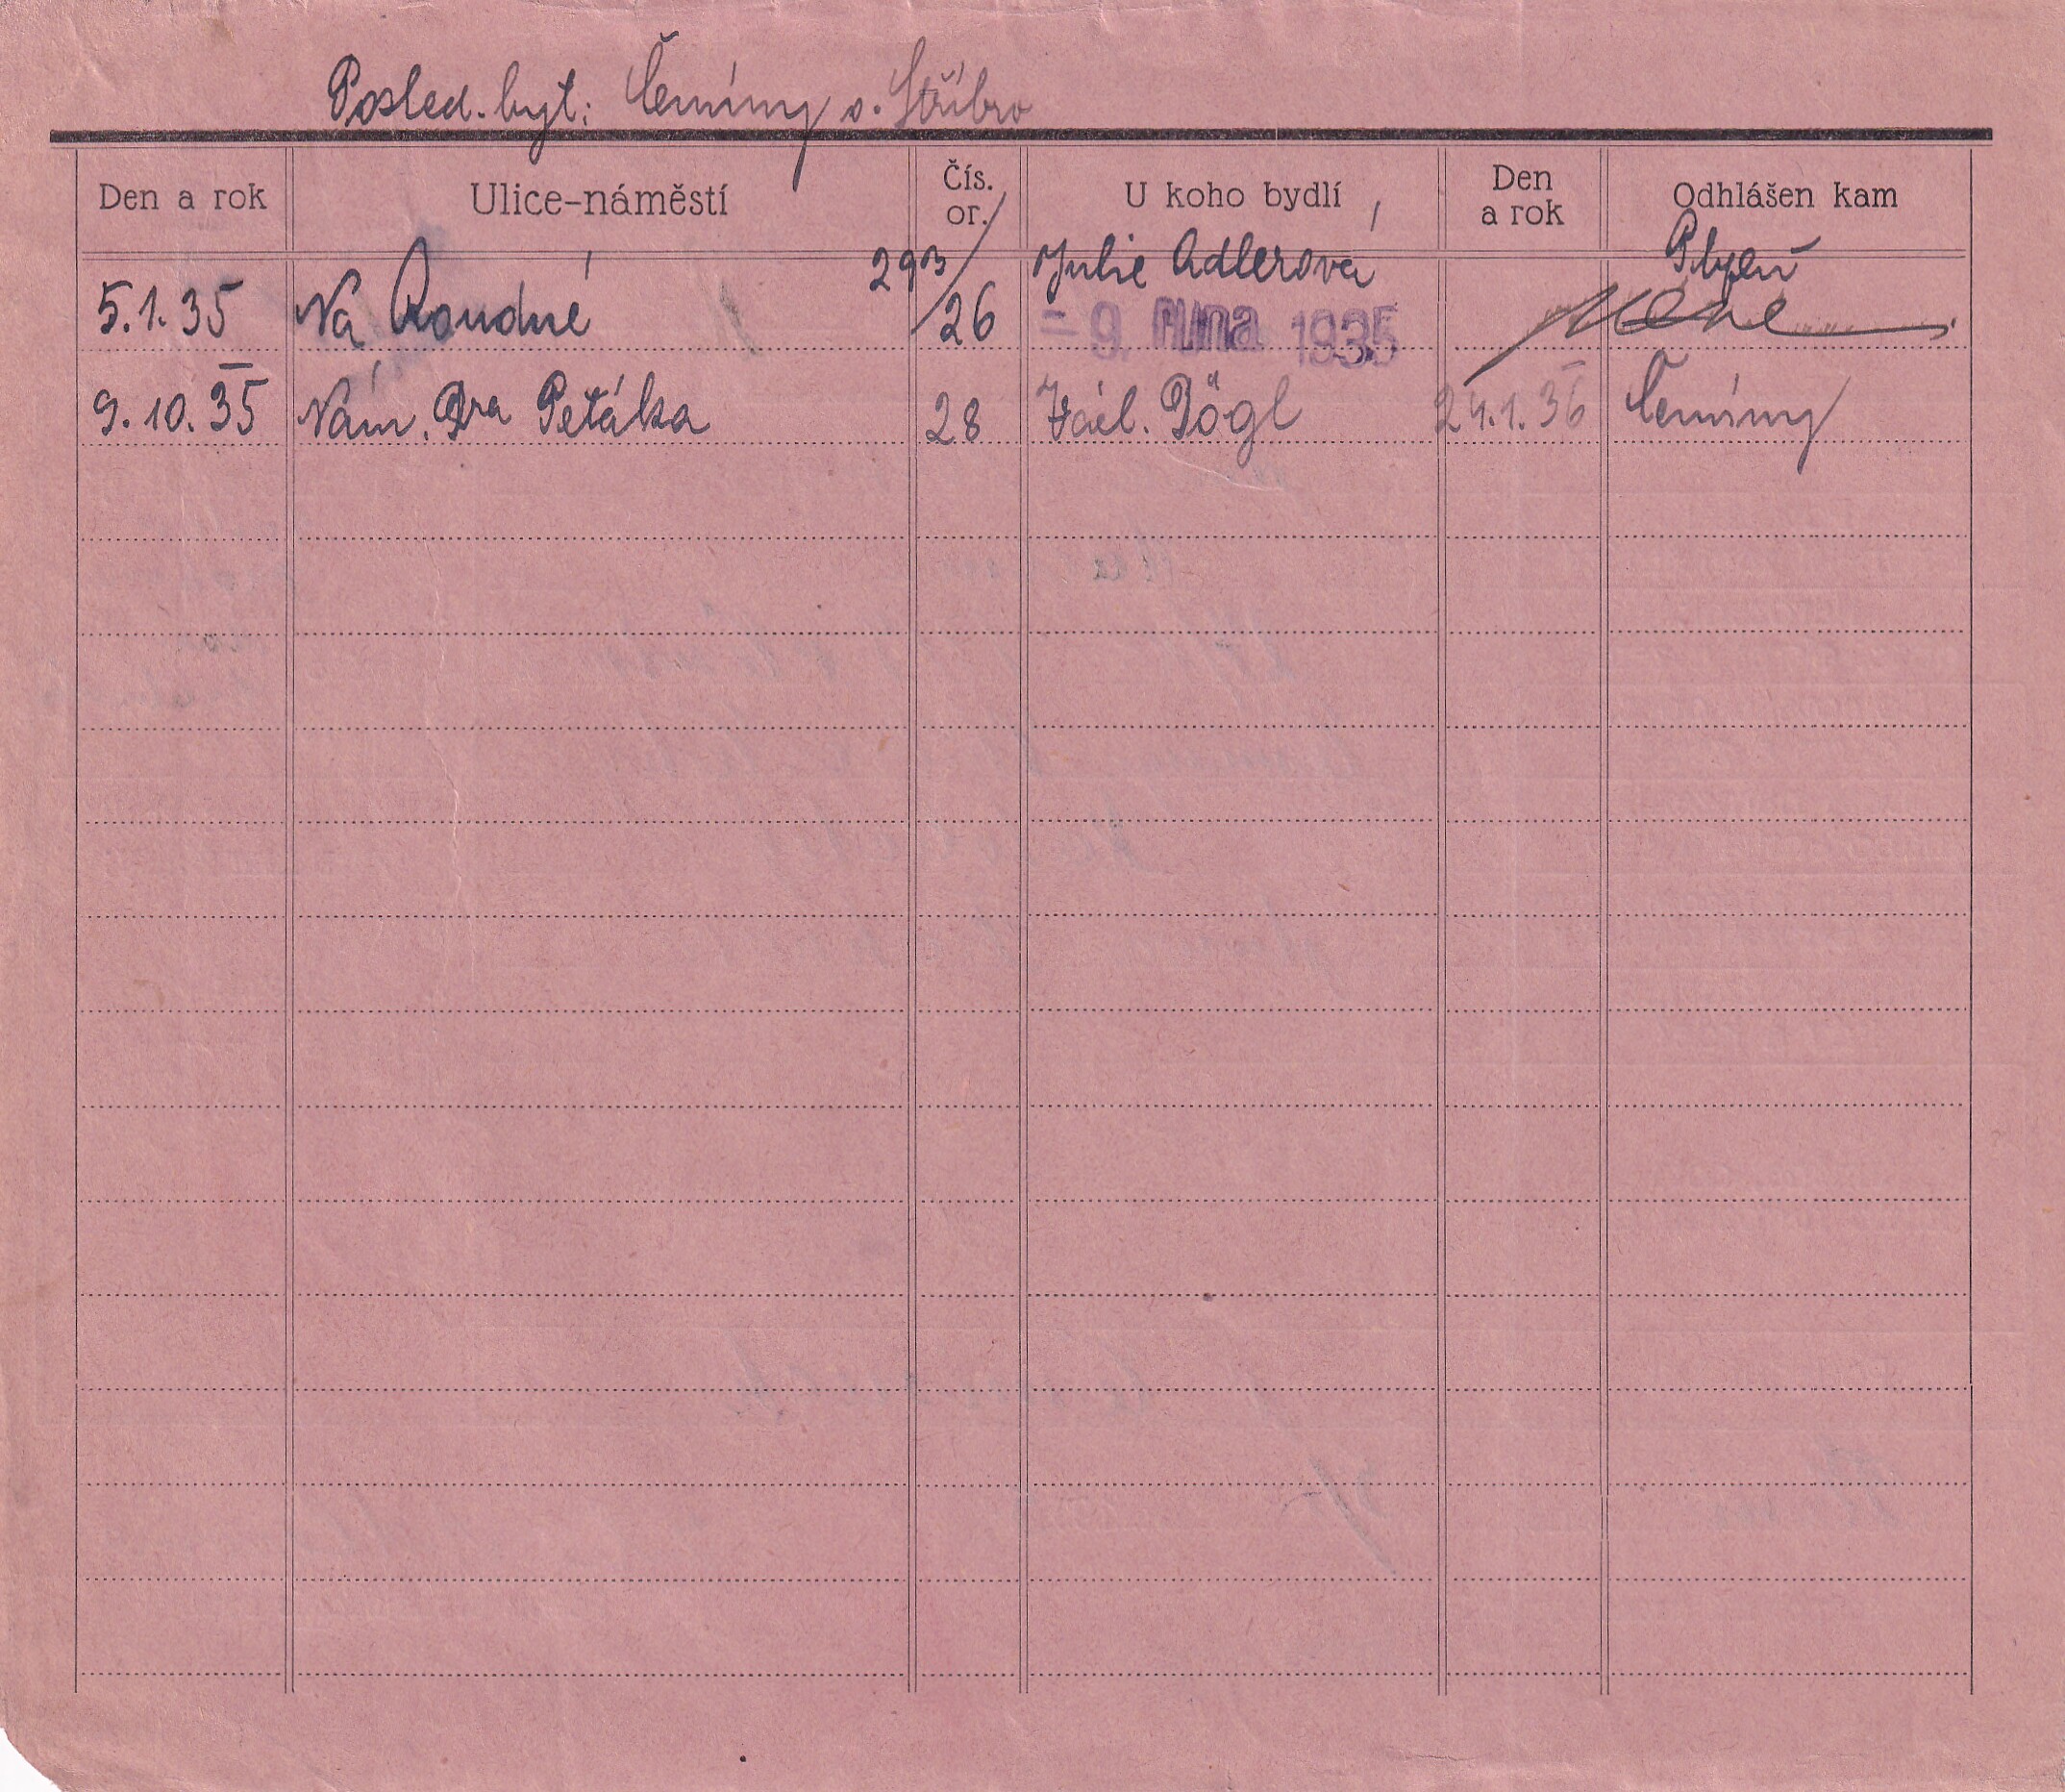 Posled. byt: Čemíny o. Stříbro
Den a rok Ulice-náměstí Čís. or. U koho bydlí Den a rok Odhlášen kam
5.1.35 Na Roudné 293/26 Julie Adlerová Plzeň
= 9. října 1935
9.10.35 Nám. Dra Petáka 28 Pögl 24.1.36 Čemíny